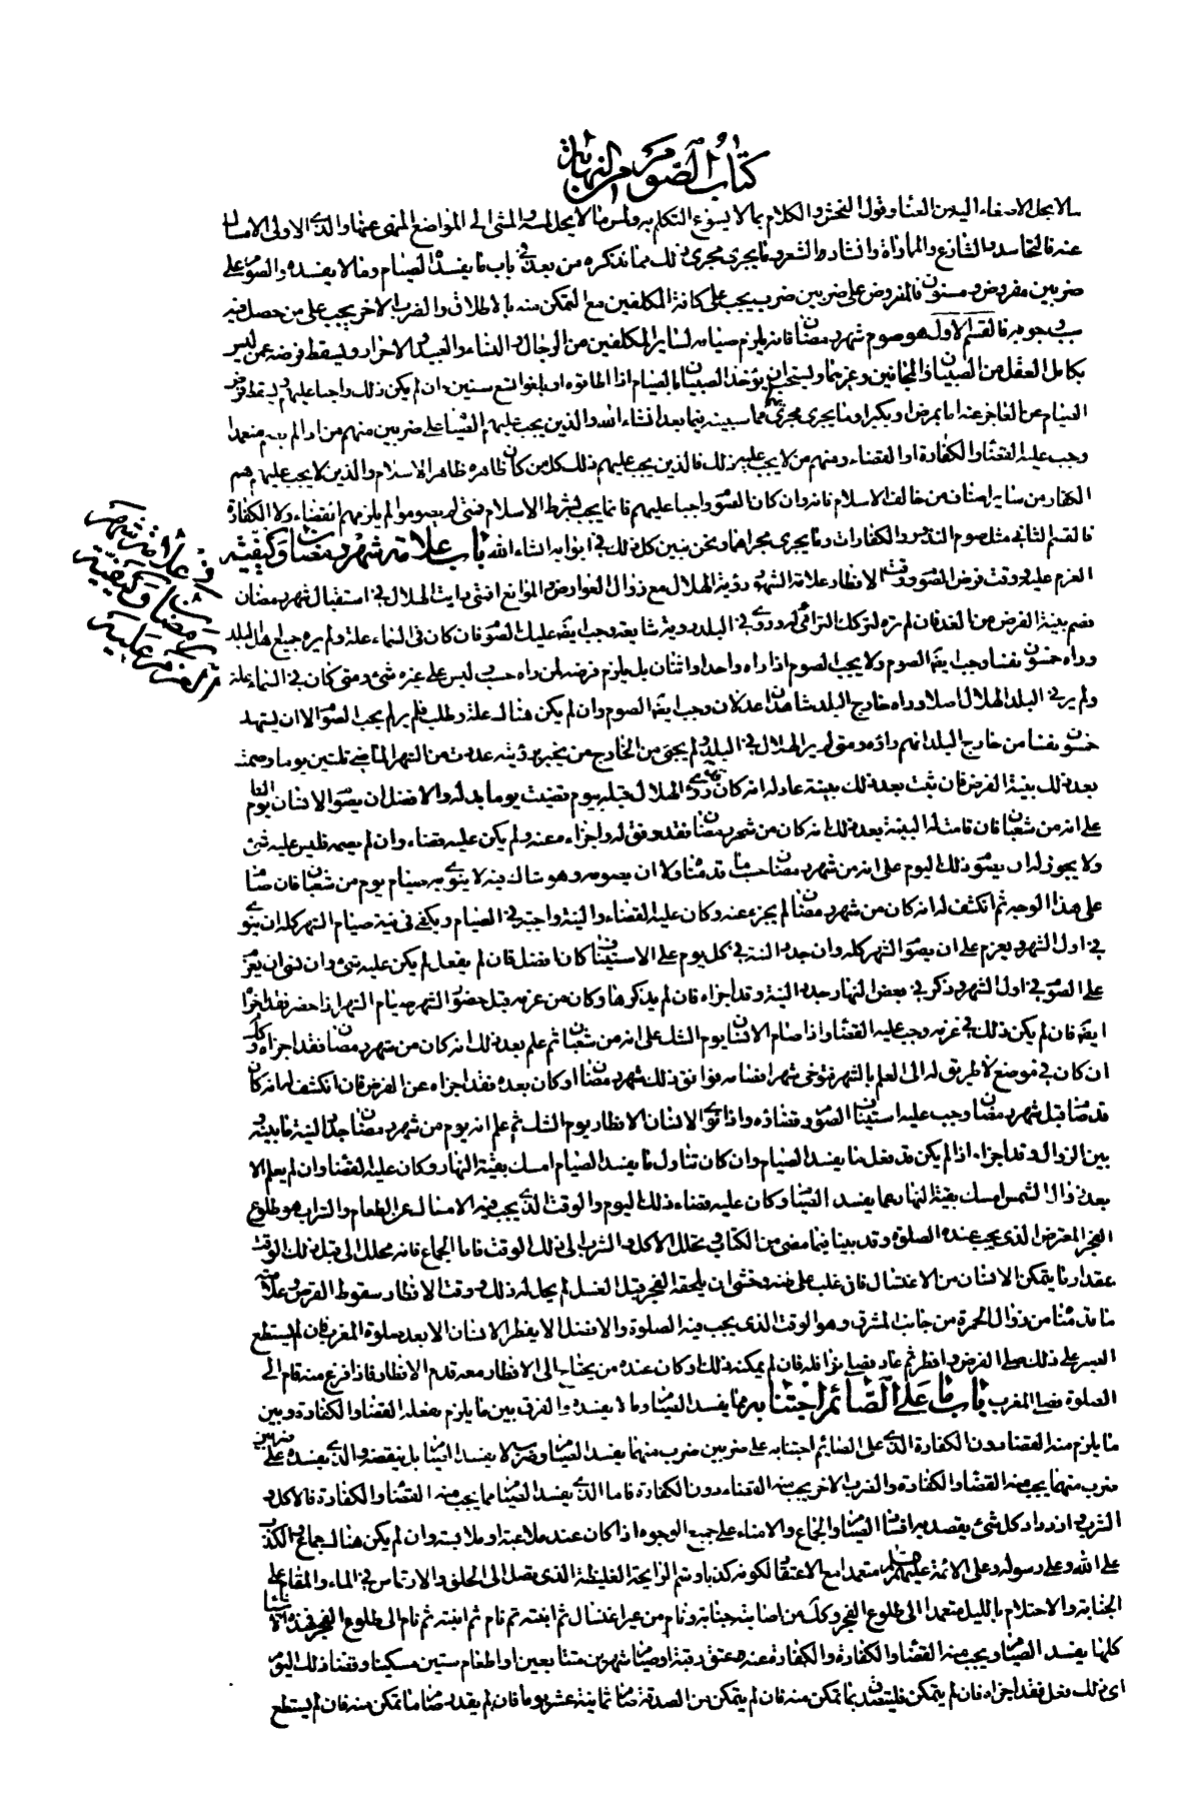 كتاب الصوم من النهاية
ما لا يحل الاصغاء اليه من الغناء وقول الفحش والكلام بما لا يسوغ التكلم به ولمس ما لا يحل لمسه والمشى الى المواضع المنهى عنها والذى الاولى الامساك
عنه فالتحاسد والتنازع والمماراة وانشاد الشعر وما يجرى مجرى ذلك مما نذكره من بعد فى باب ما يفسد الصيام وما لا يفسده والصوم على
ضربين مفروض ومسنون فالمفروض على ضربين ضرب يجب على كافة المكلفين مع التمكن منه بالاطلاق والضرب الاخر يجب على من حصل فيه
سبب وجوبه فالقسم الاول هو صوم شهر رمضان فانه يلزم صيامه لسائر المكلفين من الرجال والنساء والعبيد والاحرار ويسقط فرضه عمن ليس
بكامل العقل من الصبيان والمجانين وغيرهما ويستحب ان يؤخذ الصبيان بالصيام اذا اطاقوه او بلغوا تسع سنين وان لم يكن ذلك واجبا عليهم ويسقط فرض
الصيام عن العاجز عنه اما بمرض او بكبر او ما يجرى مجراهما مما سنبينه فيما بعد انشاء الله والذين يجب عليهم الصيام على ضربين منهم من اذا لم يصم متعمدا
وجب عليه القضاء والكفارة او القضاء ومنهم من لا يجب عليه ذلك فالذين يجب عليهم ذلك كل من كان ظاهره ظاهر الاسلام والذين لا يجب عليهم هم
الكفار من ساير اصناف من خالف الاسلام فانه وان كان الصوم واجبا عليهم فانما يجب بشرط الاسلام فمتى لم يصوموا لم يلزمهم القضاء ولا الكفارة
فالقسم الثانى مثل صوم النذور والكفارات وما يجرى مجراهما ونحن نبين كل ذلك فى ابوابه انشاء الله باب علامة شهر رمضان وكيفية
فى علامة شهر
رمضان وكيفية
العزم عليه
العزم عليه ووقت فرض الصوم ووقت الافطار علامة الشهور رؤية الهلال مع زوال العوارض والموانع فمتى رايت الهلال فى استقبال شهر رمضان
فصم بنية الفرض من الغد فان لم تره لتركك الترائى له ورؤى فى البلد رؤية شايعة وجب ايضا عليك الصوم فان كان فى السماء علة ولم يره جميع اهل البلد
وراه خمسون نفسا وجب ايضا الصوم ولا يجب الصوم اذا راه واحد او اثنان بل يلزم فرضه لمن راه حسب وليس على غيره شئ ومتى كان فى السماء علة
ولم ير فى البلد الهلال اصلا وراه خارج البلد شاهدان عدلان وجب ايضا الصوم وان لم يكن هناك علة وطلب فلم ير لم يجب الصوم الا ان يشهد
خمسون نفسا من خارج البلد انهم راوه ومتى لم ير الهلال فى البلد ولم يجئ من الخارج من يخبر برؤيته عددت من الشهر الماضى ثلثين يوما وصمت
بعد ذلك بنية الفرض فان ثبت بعد ذلك ببينة عادلة انه كان رؤى الهلال قبله بيوم قضيت يوما بدله والافضل ان يصوم الانسان يوم الشك
على انه من شعبان فان قامت له البينة بعد ذلك انه كان من شهر رمضان فقد وفق له واجزاء عنه ولم يكن عليه قضاء وان لم يصمه فليس عليه شئ
ولا يجوز له ان يصوم ذلك اليوم على انه من شهر رمضان حسب ما قدمناه ولا ان يصومه وهو شاك فيه لا ينوى به صيام يوم من شعبان فان صام
على هذا الوجه ثم انكشف له انه كان من شهر رمضان لم يجزء عنه وكان عليه القضاء والنية واجبة فى الصيام ويكفى فى نية صيام الشهر كله ان ينوى
فى اول الشهر ويعزم على ان يصوم الشهر كله وان جدد النية فى كل يوم على الاستيناف كان افضل فان لم يفعل لم يكن عليه شئ وان نسى ان يعزم
على الصوم فى اول الشهر وذكر فى بعض النهار جدد النية وقد اجزاه فان لم يذكرها وكان من عزمه قبل حضور الشهر صيام الشهر اذا حضر فقد اجزاه
ايضا فان لم يكن ذلك فى عزمه وجب عليه القضاء واذا صام الانسان يوم الشك على انه من شعبان ثم علم بعد ذلك انه كان من شهر رمضان فقد اجزاه وكذلك
ان كان فى موضع لا طريق له الى العلم بالشهر فتوخى شهرا فصامه فوافق ذلك شهر رمضان او كان بعده فقد اجزاه عن الفرض فان انكشف له انه كان
قد صام قبل شهر رمضان وجب عليه استيناف الصوم وقضاؤه واذا نوى الانسان الافطار يوم الشك ثم علم انه يوم من شهر رمضان جدد النية ما بينه
بين الزوال وقد اجزاه اذا لم يكن قد فعل ما يفسد الصيام وان كان تناول ما يفسد الصيام امسك بقية النهار وكان عليه القضاء وان لم يعلم الا
بعد زوال الشمس امسك بقية النهار عما يفسد الصيام وكان عليه قضاء ذلك اليوم والوقت الذى يجب فيه الامساك عن الطعام والشراب هو طلوع
الفجر المعترض الذى يجب عنده الصلوة وقد بيناه فيما مضى من الكتاب ومحلل الاكل والشرب الى ذلك الوقت فاما الجماع فانه محلل الى قبل ذلك الوقت
بمقدار ما يتمكن الانسان من الاغتسال فان غلب على ظنه وخشى ان يلحقه الفجر قبل الغسل لم يحل له ذلك ووقت الافطار سقوط القرص وعلامته
ما قدمناه من زوال الحمرة من جانب المشرق وهو الوقت الذى يجب فيه الصلوة والافضل الا يفطر الانسان الا بعد صلوة المغرب فان لم يستطع
الصبر على ذلك صلى الفرض وافطر ثم عاد فصلى نوافله فان لم يمكنه ذلك او كان عنده من يحتاج الى الافطار معه قدم الافطار فاذا فرغ منه قام الى
الصلوة فصلى المغرب باب ما على الصائم اجتنابه مما يفسد الصيام وما لا يفسده والفرق بين ما يلزم بفعله القضاء والكفارة وبين
ما يلزم منه القضاء دون الكفارة الذى على الصائم اجتنابه على ضربين ضرب منهما يفسد الصيام وضرب لا يفسد الصيام بل ينقصه والذى يفسده على ضربين
ضرب منهما يجب منه القضاء والكفارة والضرب الاخر يجب منه القضاء دون الكفارة فاما الذى يفسد الصيام مما يجب منه القضاء والكفارة فالاكل و
الشرب وازدراد كل شئ يقصد به افساد الصيام والجماع والامناء على جميع الوجوه اذا كان عند ملاعبة او ملامسة وان لم يكن هناك جماع والكذب
على الله وعلى رسوله وعلى الائمة عليهم السلم متعمدا مع الاعتقاد لكونه كذبا وشم الرايحة الغليظة التى تصل الى الحلق والارتماس فى الماء والمقام على
الجنابة والاحتلام بالليل متعمدا الى طلوع الفجر وكذلك من اصابته جنابة ونام من غير اغتسال ثم انتبه ثم نام ثم انتبه ثم نام الى طلوع الفجر فهذه الاشياء
كلها يفسد الصيام ويجب منه القضاء والكفارة والكفارة عنه عتق رقبة او صيام شهرين متتابعين او اطعام ستين مسكينا وقضاء ذلك اليوم
اى ذلك فعل فقد اجزاه فان لم يتمكن فليتصدق بما تمكن منه فان لم يتمكن من الصدقة صام ثمانية عشر يوما فان لم يقدر صام ما تمكن منه فان لم يستطع